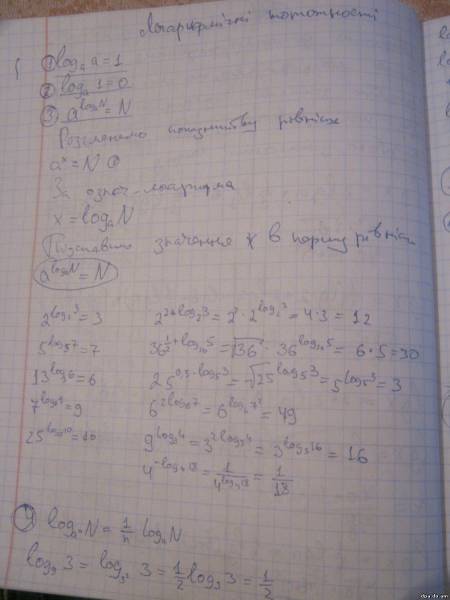 Логарифмічні тотожності
① logₐ a = 1
② logₐ 1 = 0
③ a^(logₐN) = N
Розглянемо показникову рівність
aˣ = N
За означ. логарифма
x = logₐN
Підставимо значення x в першу рівність
a^(logₐN) = N
2^(log₂3) = 3
5^(log₅7) = 7
13^(log₁₃6) = 6
7^(log₇9) = 9
25^(log₂₅10) = 10
2^(2+log₂3) = 2² · 2^(log₂3) = 4 · 3 = 12
36^(1/2+log₃₆5) = √36 · 36^(log₃₆5) = 6 · 5 = 30
25^(0,5·log₅3) = √25^(log₅3) = 5^(log₅3) = 3
6^(2log₆7) = 6^(log₆7²) = 49
9^(log₃4) = 3^(2log₃4) = 3^(log₃16) = 16
4^(-log₄13) = 1/4^(log₄13) = 1/13
④ logₐₙN = 1/n logₐN
log₉ 3 = log₃² 3 = 1/2 log₃ 3 = 1/2
dpa.da.am